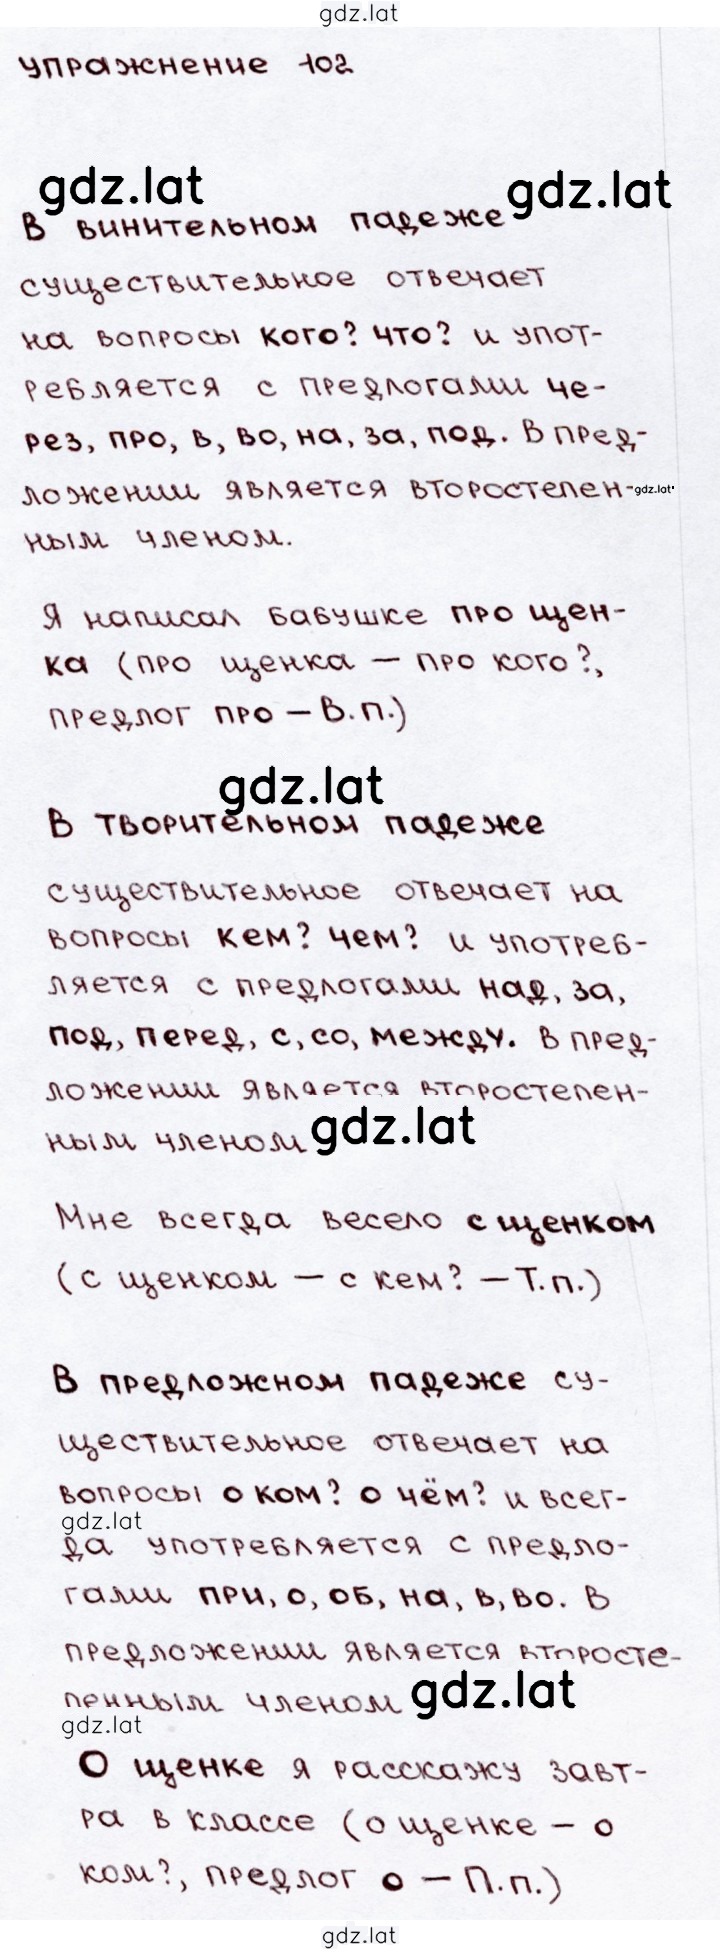 gdz.lat
упражнение 102
gdz.lat
gdz.lat
В винительном падеже
существительное отвечает
на вопросы кого? что? и упот-
ребляется с предлогами че-
рез, про, в, во, на, за, под. В пред-
ложении является второстепен-
gdz.lat
ным членом.
Я написал бабушке про щен-
ка (про щенка – про кого?,
предлог про – В.п.)
gdz.lat
В творительном падеже
существительное отвечает на
вопросы кем? чем? и употреб-
ляется с предлогами над, за,
под, перед, с, со, между. В пред-
ложении является второстепен-
ным членом
gdz.lat
Мне всегда весело с щенком
(с щенком – с кем? – Т.п.)
В предложном падеже су-
ществительное отвечает на
вопросы о ком? о чём? и всег-
gdz.lat
да употребляется с предло-
гами при, о, об, на, в, во. В
предложении является второсте-
пенным членом
gdz.lat
gdz.lat
О щенке я расскажу завт-
ра в классе (о щенке – о
ком?, предлог о – П.п.)
gdz.lat